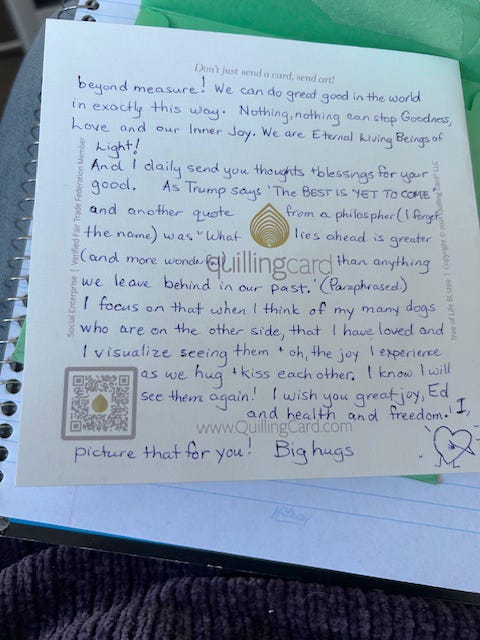 Don't just send a card, send art!
beyond measure! We can do great good in the world
in exactly this way. Nothing, nothing can stop Goodness,
Love and our Inner Joy. We are Eternal Living Beings of
Light!
And I daily send you thoughts + blessings for your
good. As Trump says 'The BEST IS YET TO COME'
and another quote from a philospher (I forget
the name) was "What lies ahead is greater
(and more wonderful) than anything
we leave behind in our past.' (Paraphrased.)
I focus on that when I think of my many dogs
who are on the other side, that I have loved and
I visualize seeing them + oh, the joy I experience
as we hug + kiss each other. I know I will
see them again! I wish you great joy, Ed
and health and freedom. I,
picture that for you! Big hugs
quillingcard
www.QuillingCard.com
Social Enterprise | Verified Fair Trade Federation Member
Tree of Life BL1299 | Copyright © Quilling Card LLC